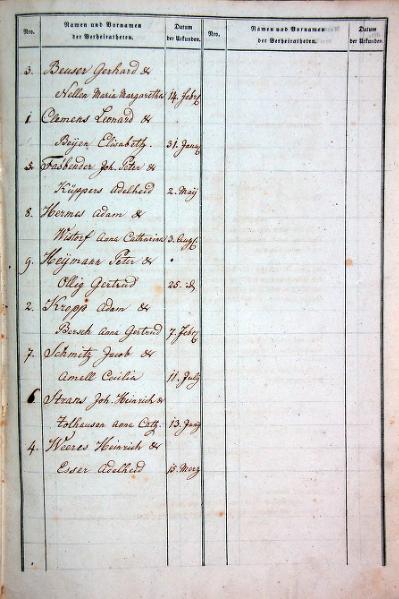 Nro.
Namen und Vornamen
der Verheiratheten.
Datum
der Urkunden.
Nro.
Namen und Vornamen
der Verheiratheten.
Datum
der Urkunden.
3. Beuser Gerhard &
Nellen Maria Margaretha 14. Febr
1. Clemens Leonard &
Beijen Elisabeth. 31. Janr
5. Fasbender Joh. Peter &
Küppers Adelheid 2. Maÿ
8. Hermes Adam &
Wistorf Anna Catharina 3. Aug
9. Heijmann Peter &
Ollig Gertrud 25. id.
2. Kropp Adam &
Bersch Anna Gertrud 7. Febr
7. Schmitz Jacob &
Amell Cecilia 11. July
6. Strans Joh. Heinrich &
Anna Cath. 13. Juny
4. Weeres Heinrich &
Esser Adelheid 15. Merz